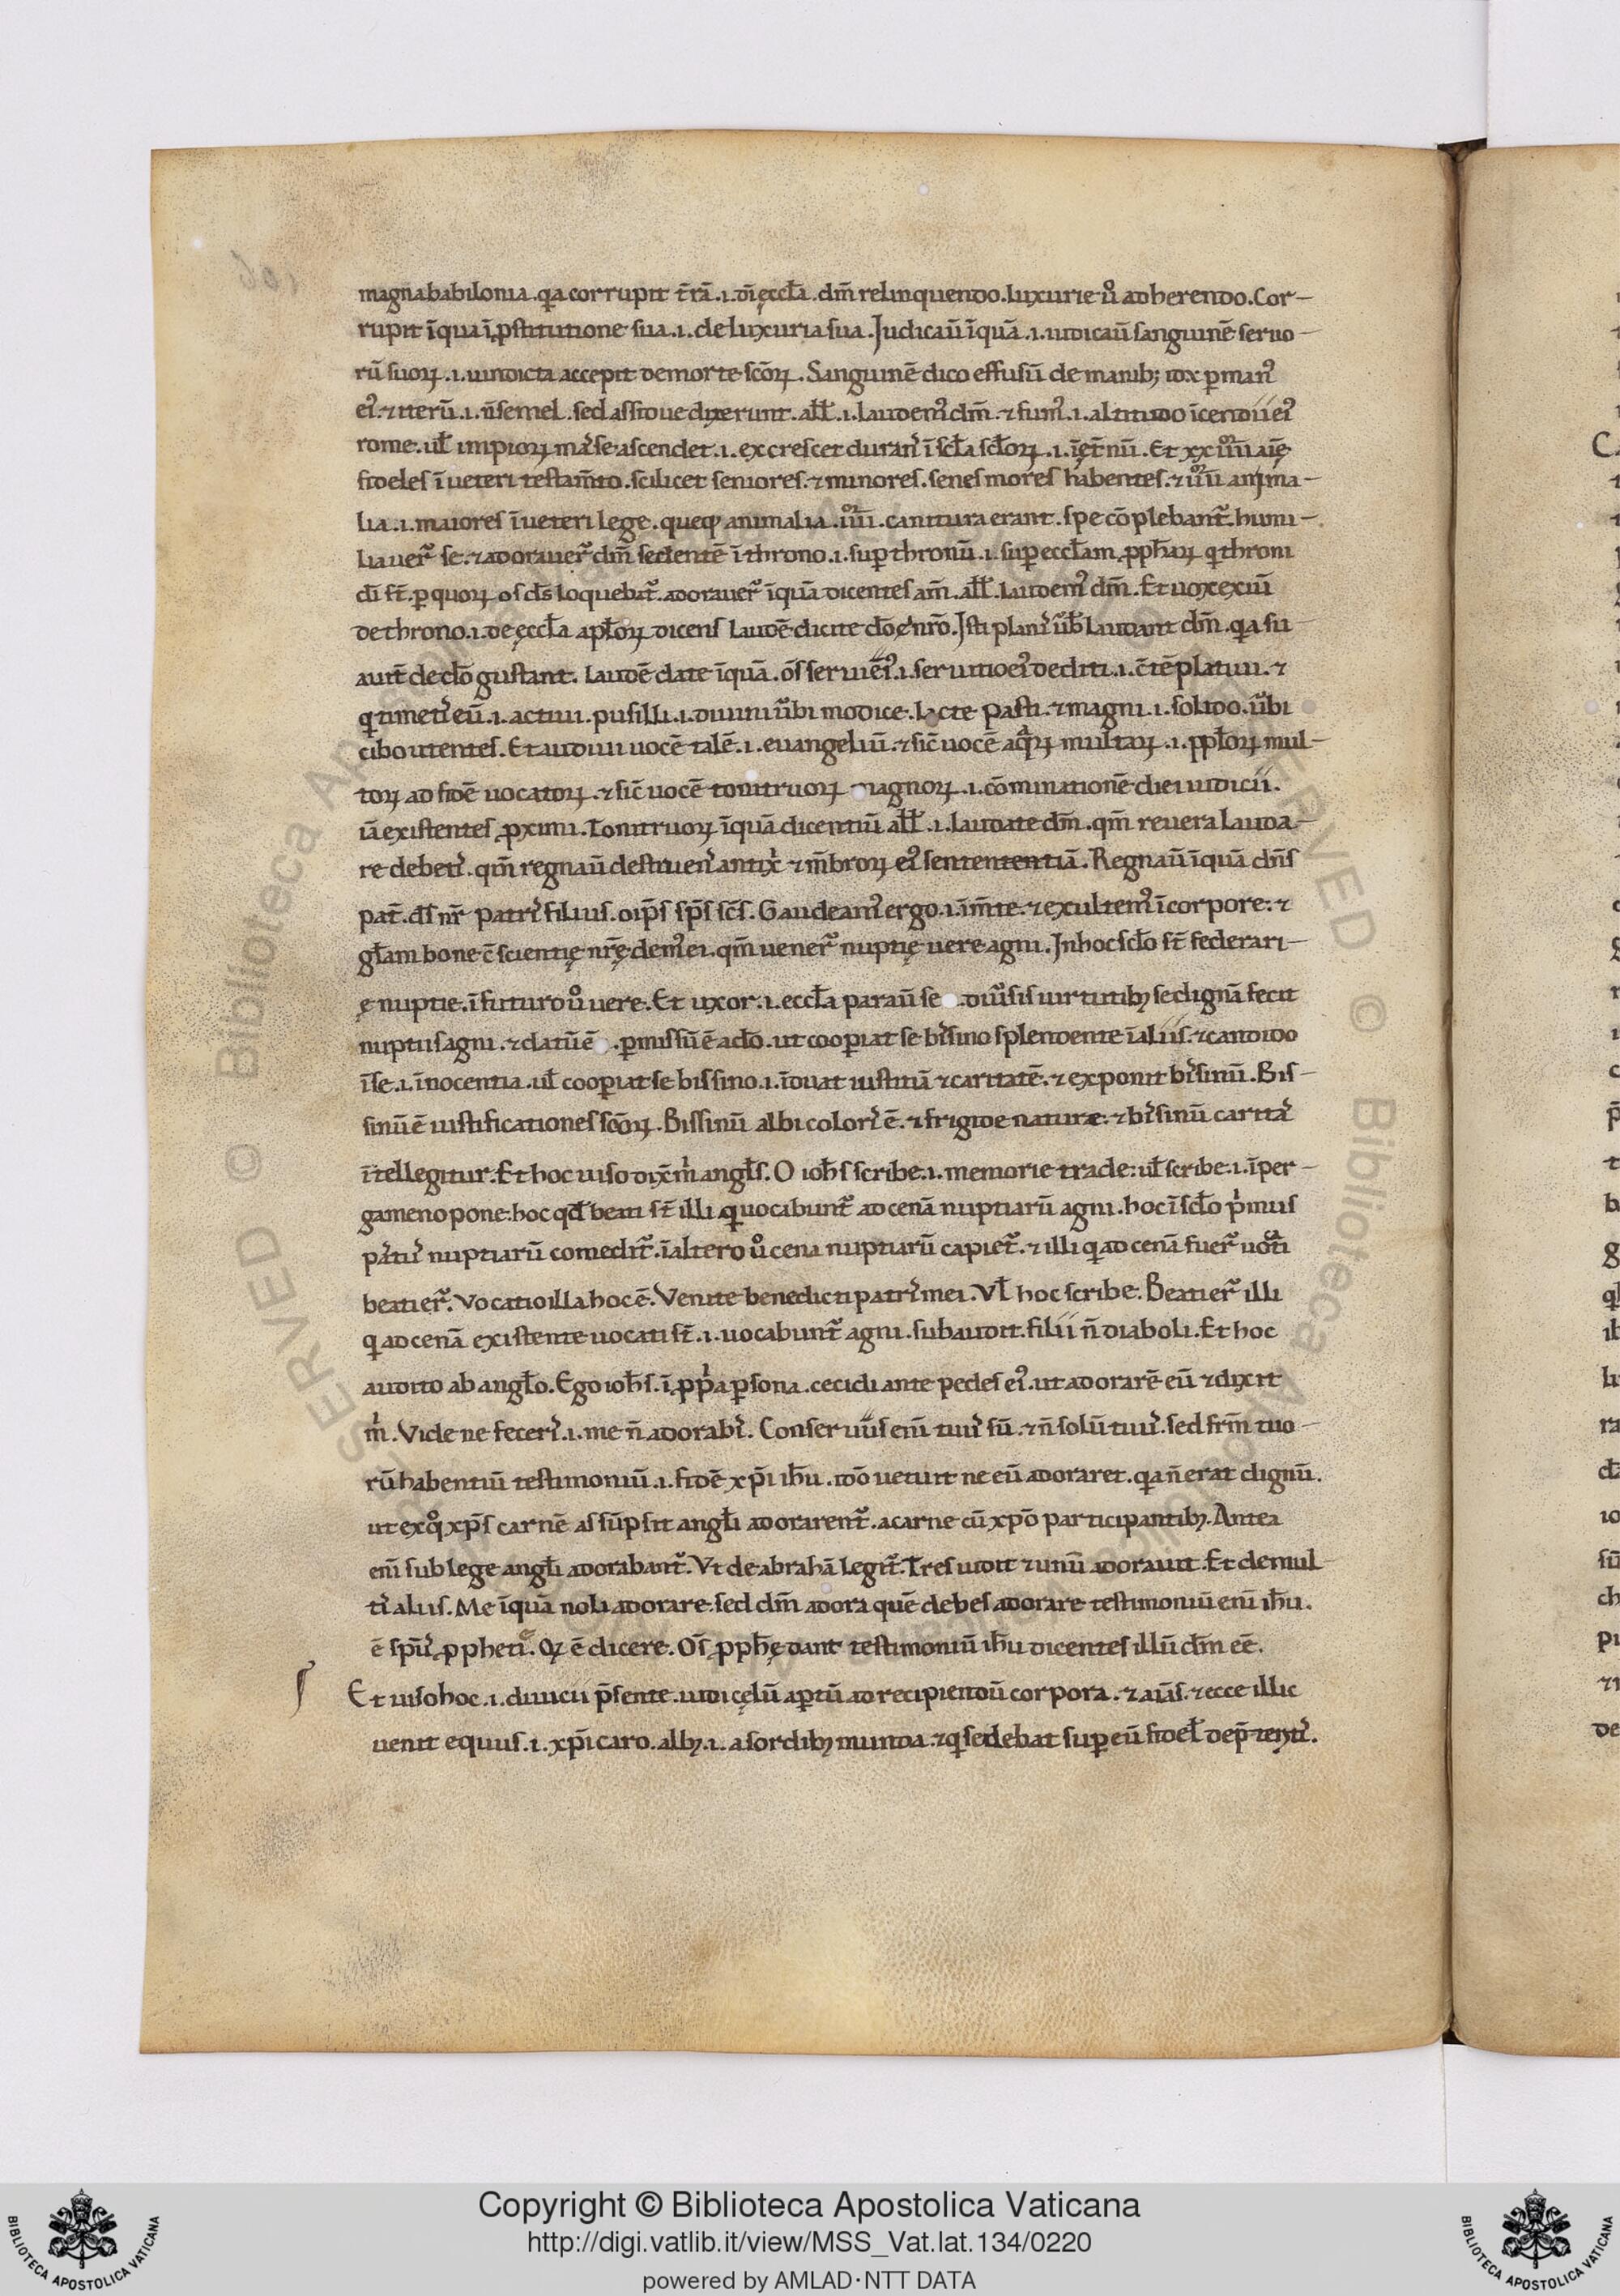 magna babilonia. qa corrupit t̄rā .i. oīm eccl̄a. dm̄ relinquendo. luxurie ů adherendo. Cor-
rupit īqua ī ꝓstitutione sua .i. de luxuria sua. Judicau̅ īquā .i. iudicau̅ sanguinē seruo-
rū suoꝝ .i. uindicta accepit de morte sc̄oꝝ. Sanguinē dico effusū de manib; idx ꝑ man᷒
ei᷒. ⁊ iterū .i. n̄ semel. sed assidue dixerunt. all̄ .i. laudem᷒ dm̄. ⁊ fum᷒ .i. altitudo īcendii ei᷒
rome. ul̄ impioꝝ se ascendet .i. excrescet ī scl̄a scl̄oꝝ .i. īęt̄nū. Et xx iiii
fideles ī ueteri testam̄to. scilicet seniores. ⁊ minores. senes mores habentes. ⁊ anima-
lia .i. maiores ī ueteri lege. queqꝫ animalia .iiii. canitura erant. spe cōplebant᷑. humi-
liauer᷑ se. ⁊ adorauer᷑ dm̄ sedentē ī throno .i. suꝑ thronū .i. suꝑ eccl̄am. ꝓph̄aꝝ q throni
dī st̄. ꝑ quoꝝ os ds̄ loquebat᷑. adorauer᷑ īquā dicentes am̄. all̄. laudem᷒ dm̄. Et uox exiu̅
de throno .i. de ęccl̄a apl̄oꝝ dicens laudē dicite dō nr̄o. Isti laudant dm̄. qa su-
aue dē dō gustant. laudē date īquā. os̄ serui ei᷒ .i. seruitio ei᷒ dediti .i. c̄tēplatiui. ⁊
q timetis eū .i. actiui. pusilli .i. diuini u̅bi modice. lacte pasti. ⁊ magni .i. solido. u̅bi
cibo utentes. Et audiui uocē talē .i. euangeliū. ⁊ sic̄ uocē aqꝝ multaꝝ .i. ppl̄oꝝ mul-
toꝝ ad fidē uocatoꝝ. ⁊ sic̄ uocē tonitruoꝝ magnoꝝ .i. cōminationē diei iudicii.
iā existentes ꝓximi. Tonitruoꝝ īquā dicentiū all̄ .i. laudate dm̄. qm̄ reuera lauda-
re debetis. qm̄ regnau̅ destruens antix ⁊ m̄broꝝ ei᷒ sentententiā. Regnau̅ īquā dn̄s
pat̄. ds̄ nr̄ patris filius. oip̄s sp̄s sc̄s. Gaudeam᷒ ergo .i. īm̄te. ⁊ exultem᷒ ī corpore. ⁊
gl̄am bone c̄scientię nr̄ę dem᷒ ei. qm̄ uener᷑ nuptię uere agni. Jn hoc scl̄o st̄ federari-
ę nuptie. ī futuro ů uere. Et uxor .i. eccl̄a parau̅ se. diu̅sis uirtutibꝫ se dignā fecit
nuptiis agni. ⁊ datū ē. ꝑmissū ē a dō. ut cooꝑiat se bissino splendente ī aliis. ⁊ candido
ī se .i. īnocentia. ul̄ cooꝑiat se bissino .i. īduat iustitiā ⁊ caritatē. ⁊ exponit bisinū. Bis-
sinū ē iustificationes sc̄oꝝ. Bissinū albi coloris ē. ⁊ frigide naturæ. ⁊ bisinū caritas
ītellegitur. Et hoc uiso dix̄ m̍ angl̄s. O ioh̄s scribe .i. memorie trade. ul̄ scribe .i. ī per-
gameno pone. hoc qd̄ beati st̄ illi qui uocabunt᷑ ad cenā nuptiarū agni. hoc ī scl̄o p̍mus
nuptiarū comedit᷑. ī altero ů cena nuptiarū capiet᷑. ⁊ illi q ad cenā fuer᷑ uoti
beati er᷑. Vocatio illa hoc ē. Venite benedicti patris mei. Vl̄ hoc scribe. Beati er᷑ illi
q ad cenā existente uocati st̄ .i. uocabunt᷑ agni. subaudit. filii n̄ diaboli. Et hoc
audito ab angl̄o. Ego ioh̄s. ī ꝓp̍a ꝑsona. cecidi ante pedes ei᷒. ut adorarē eū ⁊ dixit
m̍. Vide ne feceris .i. me n̄ adorabis. Conseruus enī tuus sū. ⁊ n̄ solū tuus. sed frm̄ tuo-
rū habentiū testimoniū .i. fidē xp̄i ih̄u. idō uetuit ne eū adoraret. qa n̄ erat dignū.
ut ex quo xp̄s carnē assūpsit angl̄i adorarent᷑. a carne cū xp̄o participantibꝫ. Antea
enī sub lege angl̄i adorabant᷑. Vt de abrahā legit᷑. Tres uidit ⁊ unū adorauit. Et de mul-
tis aliis. Me īquā noli adorare. sed dm̄ adora quē debes adorare testimoniū enī ih̄u.
ē spūs ꝓphetię. Qꝫ ē dicere. Os̄ ꝓph̄ę dant testimoniū ih̄u dicentes illū dm̄ eē.
Et uiso hoc .i. diuicii p̄sente. uidi cęlū aꝑtū ad recipiendū corpora. ⁊ aīas. ⁊ ecce illic
uenit equus .i. xp̄i caro. albꝫ .i. a sordibꝫ munda. ⁊ q sedebat suꝑ eū fidel̄
Copyright © Biblioteca Apostolica Vaticana
http://digi.vatlib.it/view/MSS_Vat.lat.134/0220
powered by AMLAD·NTT DATA
BIBLIOTECA APOSTOLICA VATICANA
BIBLIOTECA APOSTOLICA VATICANA